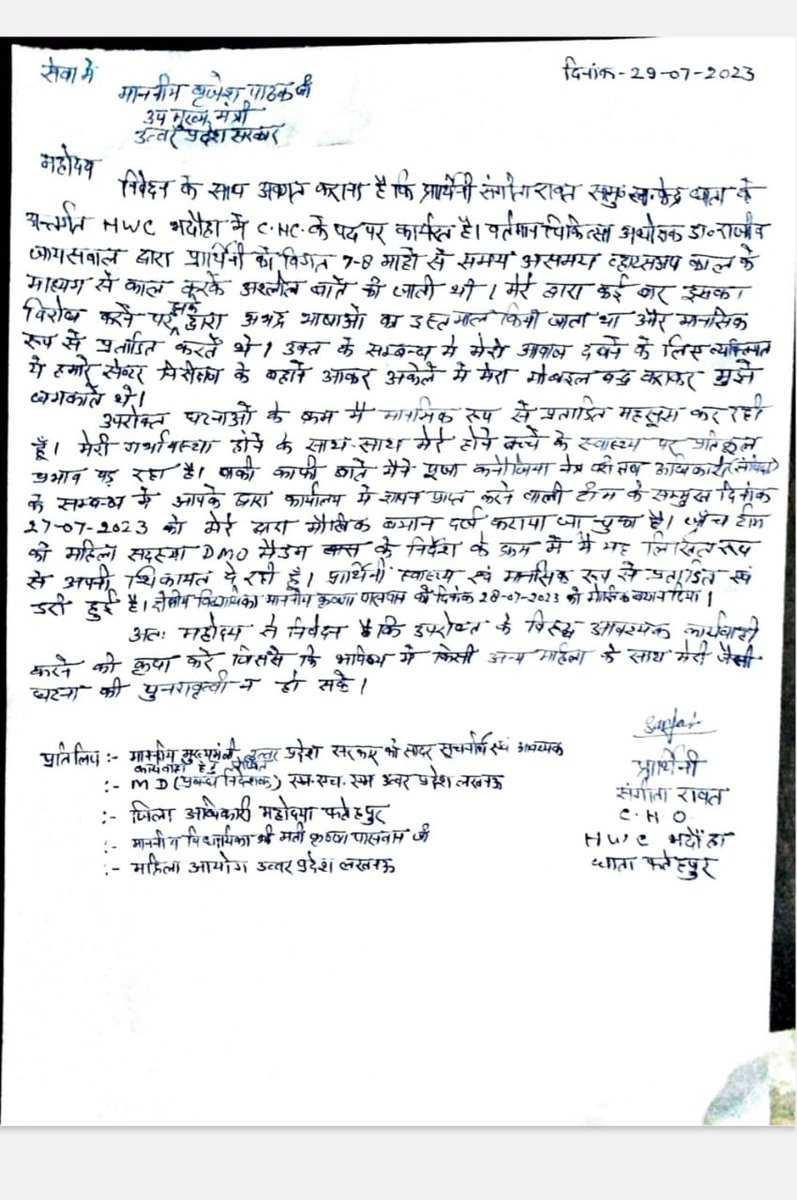 सेवा में
दिनांक-29-07-2023
माननीय बृजेश पाठक जी
उप मुख्य मंत्री
उत्तर प्रदेश सरकार
महोदय
निवेदन के साथ अवगत कराना है कि प्रार्थिनी संगीता रावत केन्द्र धाता के
अन्तर्गत HWC भदौहा में C.HC. के पद पर कार्यरत है। वर्तमान चिकित्सा अधीक्षक डा० राजीव
जायसवाल द्वारा प्रार्थिनी को विगत 7-8 माहो से समय असमय व्हाट्सअप काल के
माध्यम से काल करके अश्लील बाते की जाती थी। मेरे द्वारा कई बार इसका
विरोध करने पर इनके द्वारा अभद्र भाषाओं का इस्तमाल किया जाता था और मानसिक
रूप से प्रताडित करते थे। उक्त के सम्बन्ध मे मेरी आवाज दबाने के लिए
मे हमारे सेन्टर निरीक्षण के बहाने आकर अकेले में मेरा मोबाइल बन्द कराकर मुझे
धमकाते थे।
उपरोक्त घटनाओं के क्रम मै मानसिक रूप से प्रताडित महसूस कर रही
हूँ। मेरी गर्भावस्था होने के साथ-साथ मेरे होने बच्चे के स्वास्थ्य पर प्रतिकूल
प्रभाव पड़ रहा है। काफी बाते मैने पूजा कनौजिया
के सम्बन्ध मे आपके द्वारा कार्यालय मे ज्ञापन प्राप्त करने वाली टीम के सम्मुख दिनांक
27-07-2023 को मेरे द्वारा मौखिक बयान दर्ज कराया जा चुका है। जाँच टीम
की महिला सदस्या DMO मैडम के निर्देश के क्रम में मै यह लिखित रूप
से अपनी शिकायत दे रही हूँ। प्रार्थिनी स्वास्थ्य एवं मानसिक रूप से प्रताडित एवं
डरी हुई है। क्षेत्रीय विधायिका माननीय कृष्णा पासवान को दिनांक 28-07-2023 को मौखिक बयान दिया।
अतः महोदय से निवेदन है कि उपरोक्त के विरूद्ध आवश्यक कार्यवाही
करने की कृपा करे जिससे कि भविष्य मे किसी अन्य महिला के साथ मेरी जैसी
घटना की पुनरावृत्ती न हो सके।
प्रतिलिपि :- माननीय मुख्यमंत्री उत्तर प्रदेश सरकार को सादर सूचनार्थ एवं आवश्यक
कार्यवाही हेतु प्रेषित
:- MD (प्रबन्ध निदेशक) एम.एच.एम उत्तर प्रदेश लखनऊ
:- जिला अधिकारी महोदया फतेहपुर
:- माननीय विधायिका श्री मती कृष्णा पासवान जी
:- महिला आयोग उत्तर प्रदेश लखनऊ
प्रार्थिनी
संगीता रावत
C.H.O.
HWC भदौहा
धाता फतेहपुर